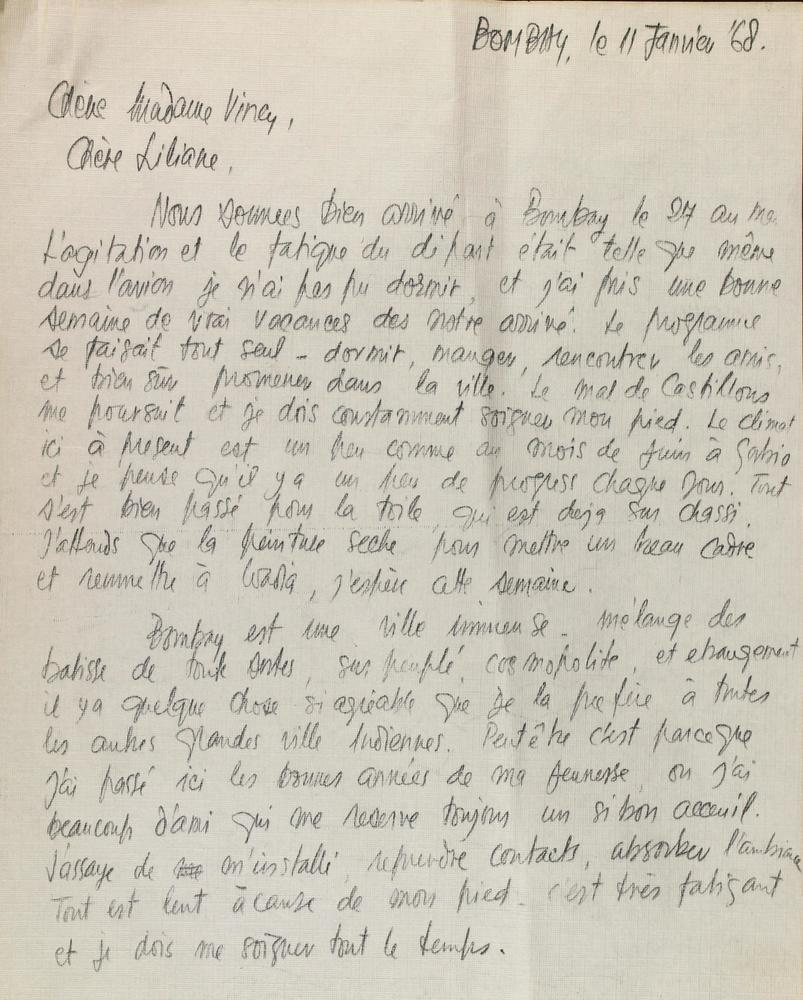 BOMBAY, le 11 Janvier '68.
Chère Madame Viney,
Chère Liliane,
Nous sommes bien arrivé à Bombay le 27 au
L'agitation et le fatigue du départ était telle que même
dans l'avion je n'ai pas pu dormir, et j'ai pris une bonne
semaine de vrai vacances des notre arrivé. Le programme
se faisait tout seul - dormir, manger, rencontrer les amis,
et bien sûr promener dans la ville. Le mal de Castillons
me poursuit et je dois constamment soigner mon pied. Le climat
ici à present est un peu comme au mois de Juin à Gorbio
et je pense qu'il y a un peu de progress chaque jour. Tout
s'est bien passé pour la toile, qui est deja sur chassi.
J'attends que la peinture seche pour mettre un beau cadre
et remmettre à Wadia, j'espère cette semaine.
Bombay est une ville immense - mélange des
batisse de toute sortes, sur peuplé, cosmopolite, et etrangement
il y a quelque chose si agréable que je la prefère à toutes
les autres grandes ville Indiennes. Peutêtre c'est parceque
j'ai passé ici les bonnes années de ma jeunesse, ou j'ai
beaucoup d'ami qui me reserve toujours un si bon acceuil.
J'assaye de m'installé, reprendre contacts, absorber l'ambiance
Tout est lent àcause de mon pied - c'est très fatigant
et je dois me soigner tout le temps.